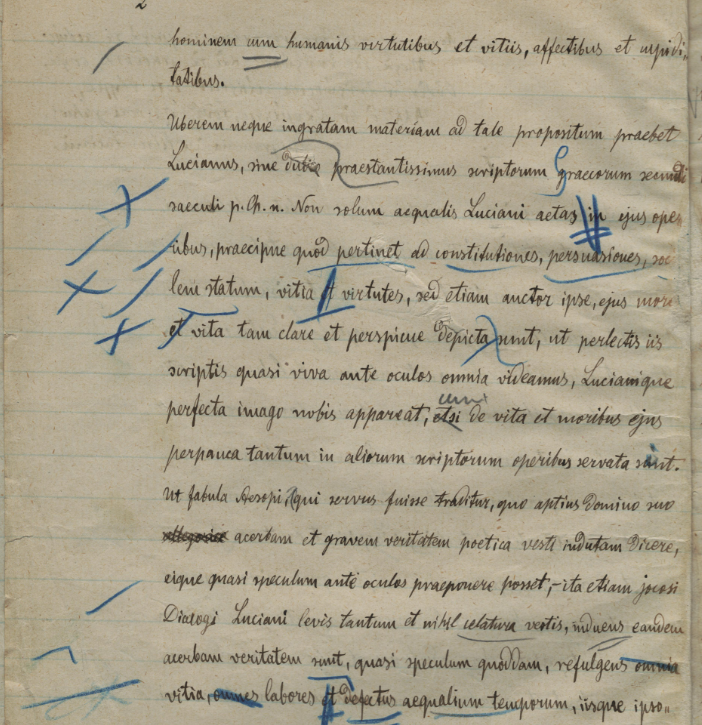 2
hominem cum humanis virtutibus et vitiis, affectibus et cupidi„
tatibus.
Uberem neque ingratam materiam ad tale propositum praebet
Lucianus, sine dubio praestantissimus scriptorum graecorum secundi
saeculi p. Ch. n. Non solum aequalis Luciani aetas in ejus ope„
ribus, praecipue quod pertinet ad constitutiones, persuasiones, soc
lem statum, vitia et virtutes, sed etiam auctor ipse, ejus mores
et vita tam clare et perspicue depicta sunt, ut perlectis iis
scriptis quasi viva ante oculos omnia videamus, Lucianique
cum
perfecta imago nobis appareat, etsi de vita et moribus ejus
perpauca tantum in aliorum scriptorum operibus servata sint.
Ut fabula Aesopi, qui servus fuisse traditur, quo aptius Domino suo
allegorice acerbam et gravem veritatem poetica vesti indutam dicere,
eique quasi speculum ante oculos praeponere posset, – ita etiam jocosi
Dialogi Luciani levis tantum et nihil celatura vestis, induens eandem
acerbam veritatem sunt, quasi speculum quoddam, refulgens omnia
vitia, omnes labores et defectus aequalium temporum, iisque ipso„